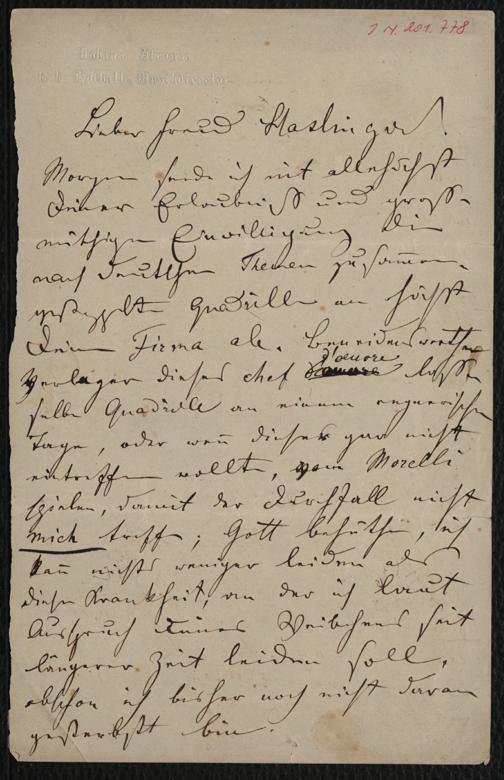 I. N. 201.778
Johann Strauss
k. k. Hofball-Musikdirector
Lieber Freund Haslinger!
Morgen sende ich mit allerhöchst
Deiner Erlaubniß und groß-
müthigen Einwilligung die
nach deutschen Themen zusammen-
gestoppelte Quadrille an höchst
Deine Firma ab. Beneidenswerther
Verleger dieses chef d'œuvre lasse
selbe Quadrille an einem regnerischen
Tage, oder wenn dieses gar nicht
eintreffen wollte, vom Morelli
spielen, damit der Durchfall nicht
mich treffe; Gott behüthe, ich
kann nichts weniger leiden als
diese Krankheit, an der ich laut
Ausspruch Deines Weibchens seit
längerer Zeit leiden soll,
obschon ich bisher noch nicht daran
gestorben bin.